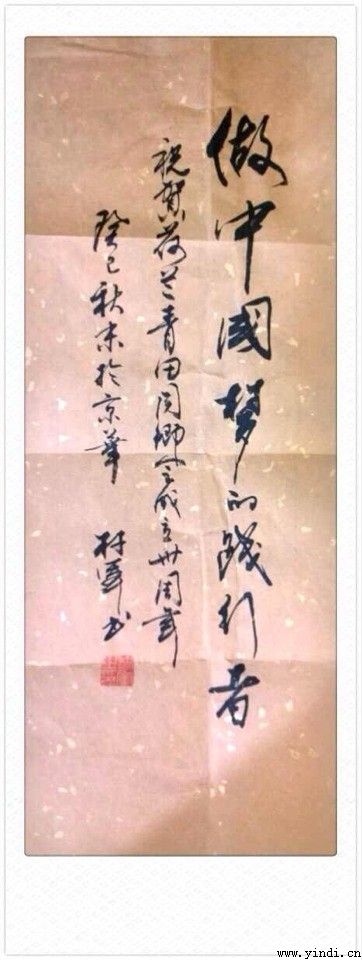 做中國梦的践行者
祝贺荷兰青田同鄉会成立卅周年
癸巳秋末於京華 村军书
www.yindi.cn